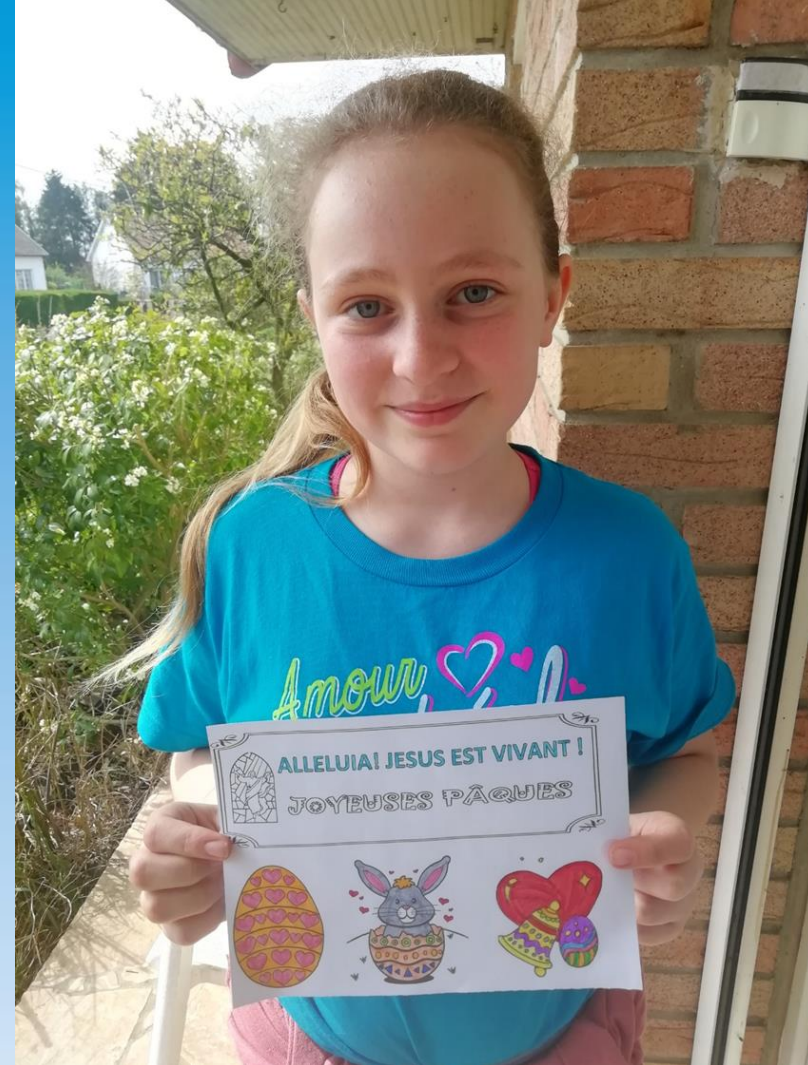 Amour
ALLELUIA! JESUS EST VIVANT !
JOYEUSES PÂQUES